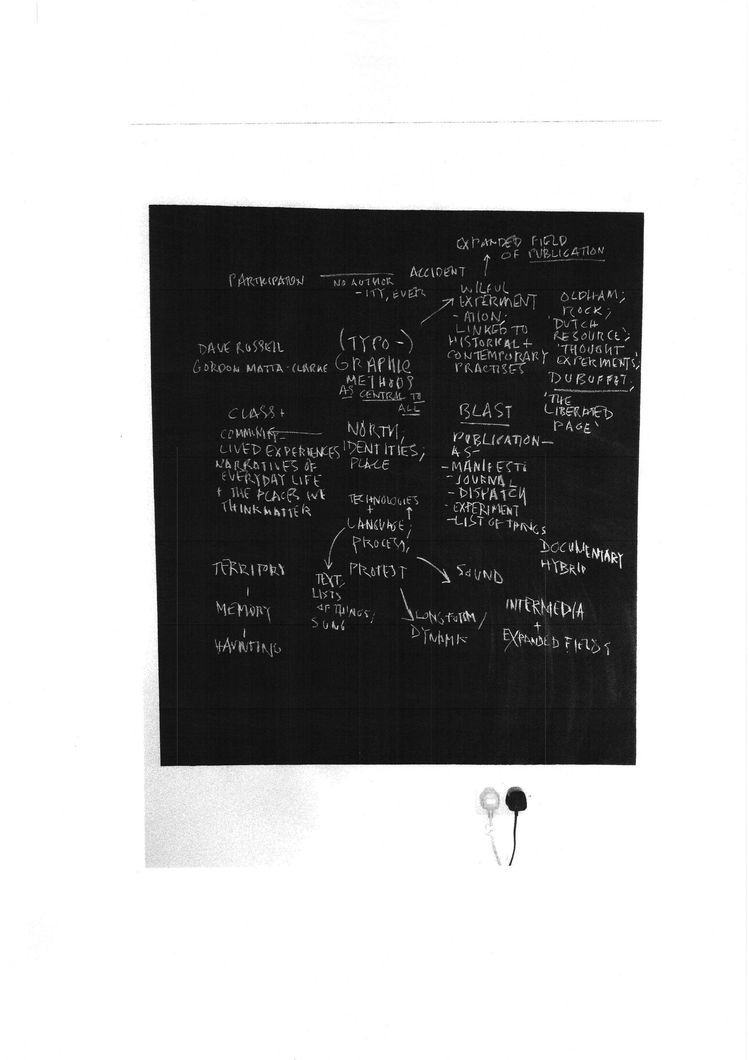 EXPANDED FIELD
OF PUBLICATION
PARTICIPATION
NO AUTHOR
-ITY, EVER
ACCIDENT
WILFUL
EXPERIMENT
-ATION;
LINKED TO
HISTORICAL +
CONTEMPORARY
PRACTISES
OLDHAM;
ROCK;
'DUTCH
RESOURCE';
'THOUGHT
EXPERIMENTS'
DUBUFFET;
'THE
LIBERATED
PAGE'
DAVE RUSSELL
GORDON MATTA-CLARKE
(TYPO-)
GRAPHIC
METHODS
AS CENTRAL TO
ALL
CLASS +
COMMUNITY-
LIVED EXPERIENCES
NARRATIVES OF
EVERYDAY LIFE
+ THE PLACES WE
THINK MATTER
NORTH,
IDENTITIES,
PLACE
TECHNOLOGIES
+
LANGUAGE;
PROCESS;
PROTEST
BLAST
PUBLICATION-
AS-
-MANIFESTO
-JOURNAL
-DISPATCH
-EXPERIMENT
-LIST OF THINGS
DOCUMENTARY
HYBRID
TERRITORY
MEMORY
HAUNTING
TEXT,
LISTS
OF THINGS;
SUNG
SOUND
LONGFORM/
DYNAMIC
INTERMEDIA
+
EXPANDED FIELDS